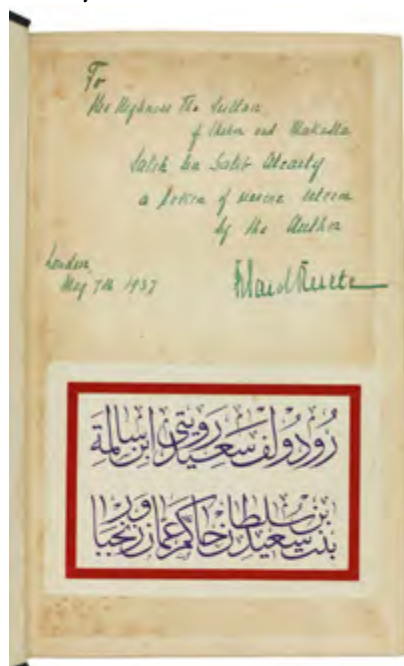 To
His Highness The Sultan
of Shehr and Makalla
Salih bin Galib Alcaity
a token of sincere esteem
by the Author
London
May 7th 1937
RSaidRuete
رُودُولف سَعِيد رويتى ابن سالمة
بنت سعيد بن سلطان حاكم عمان وزنجبار